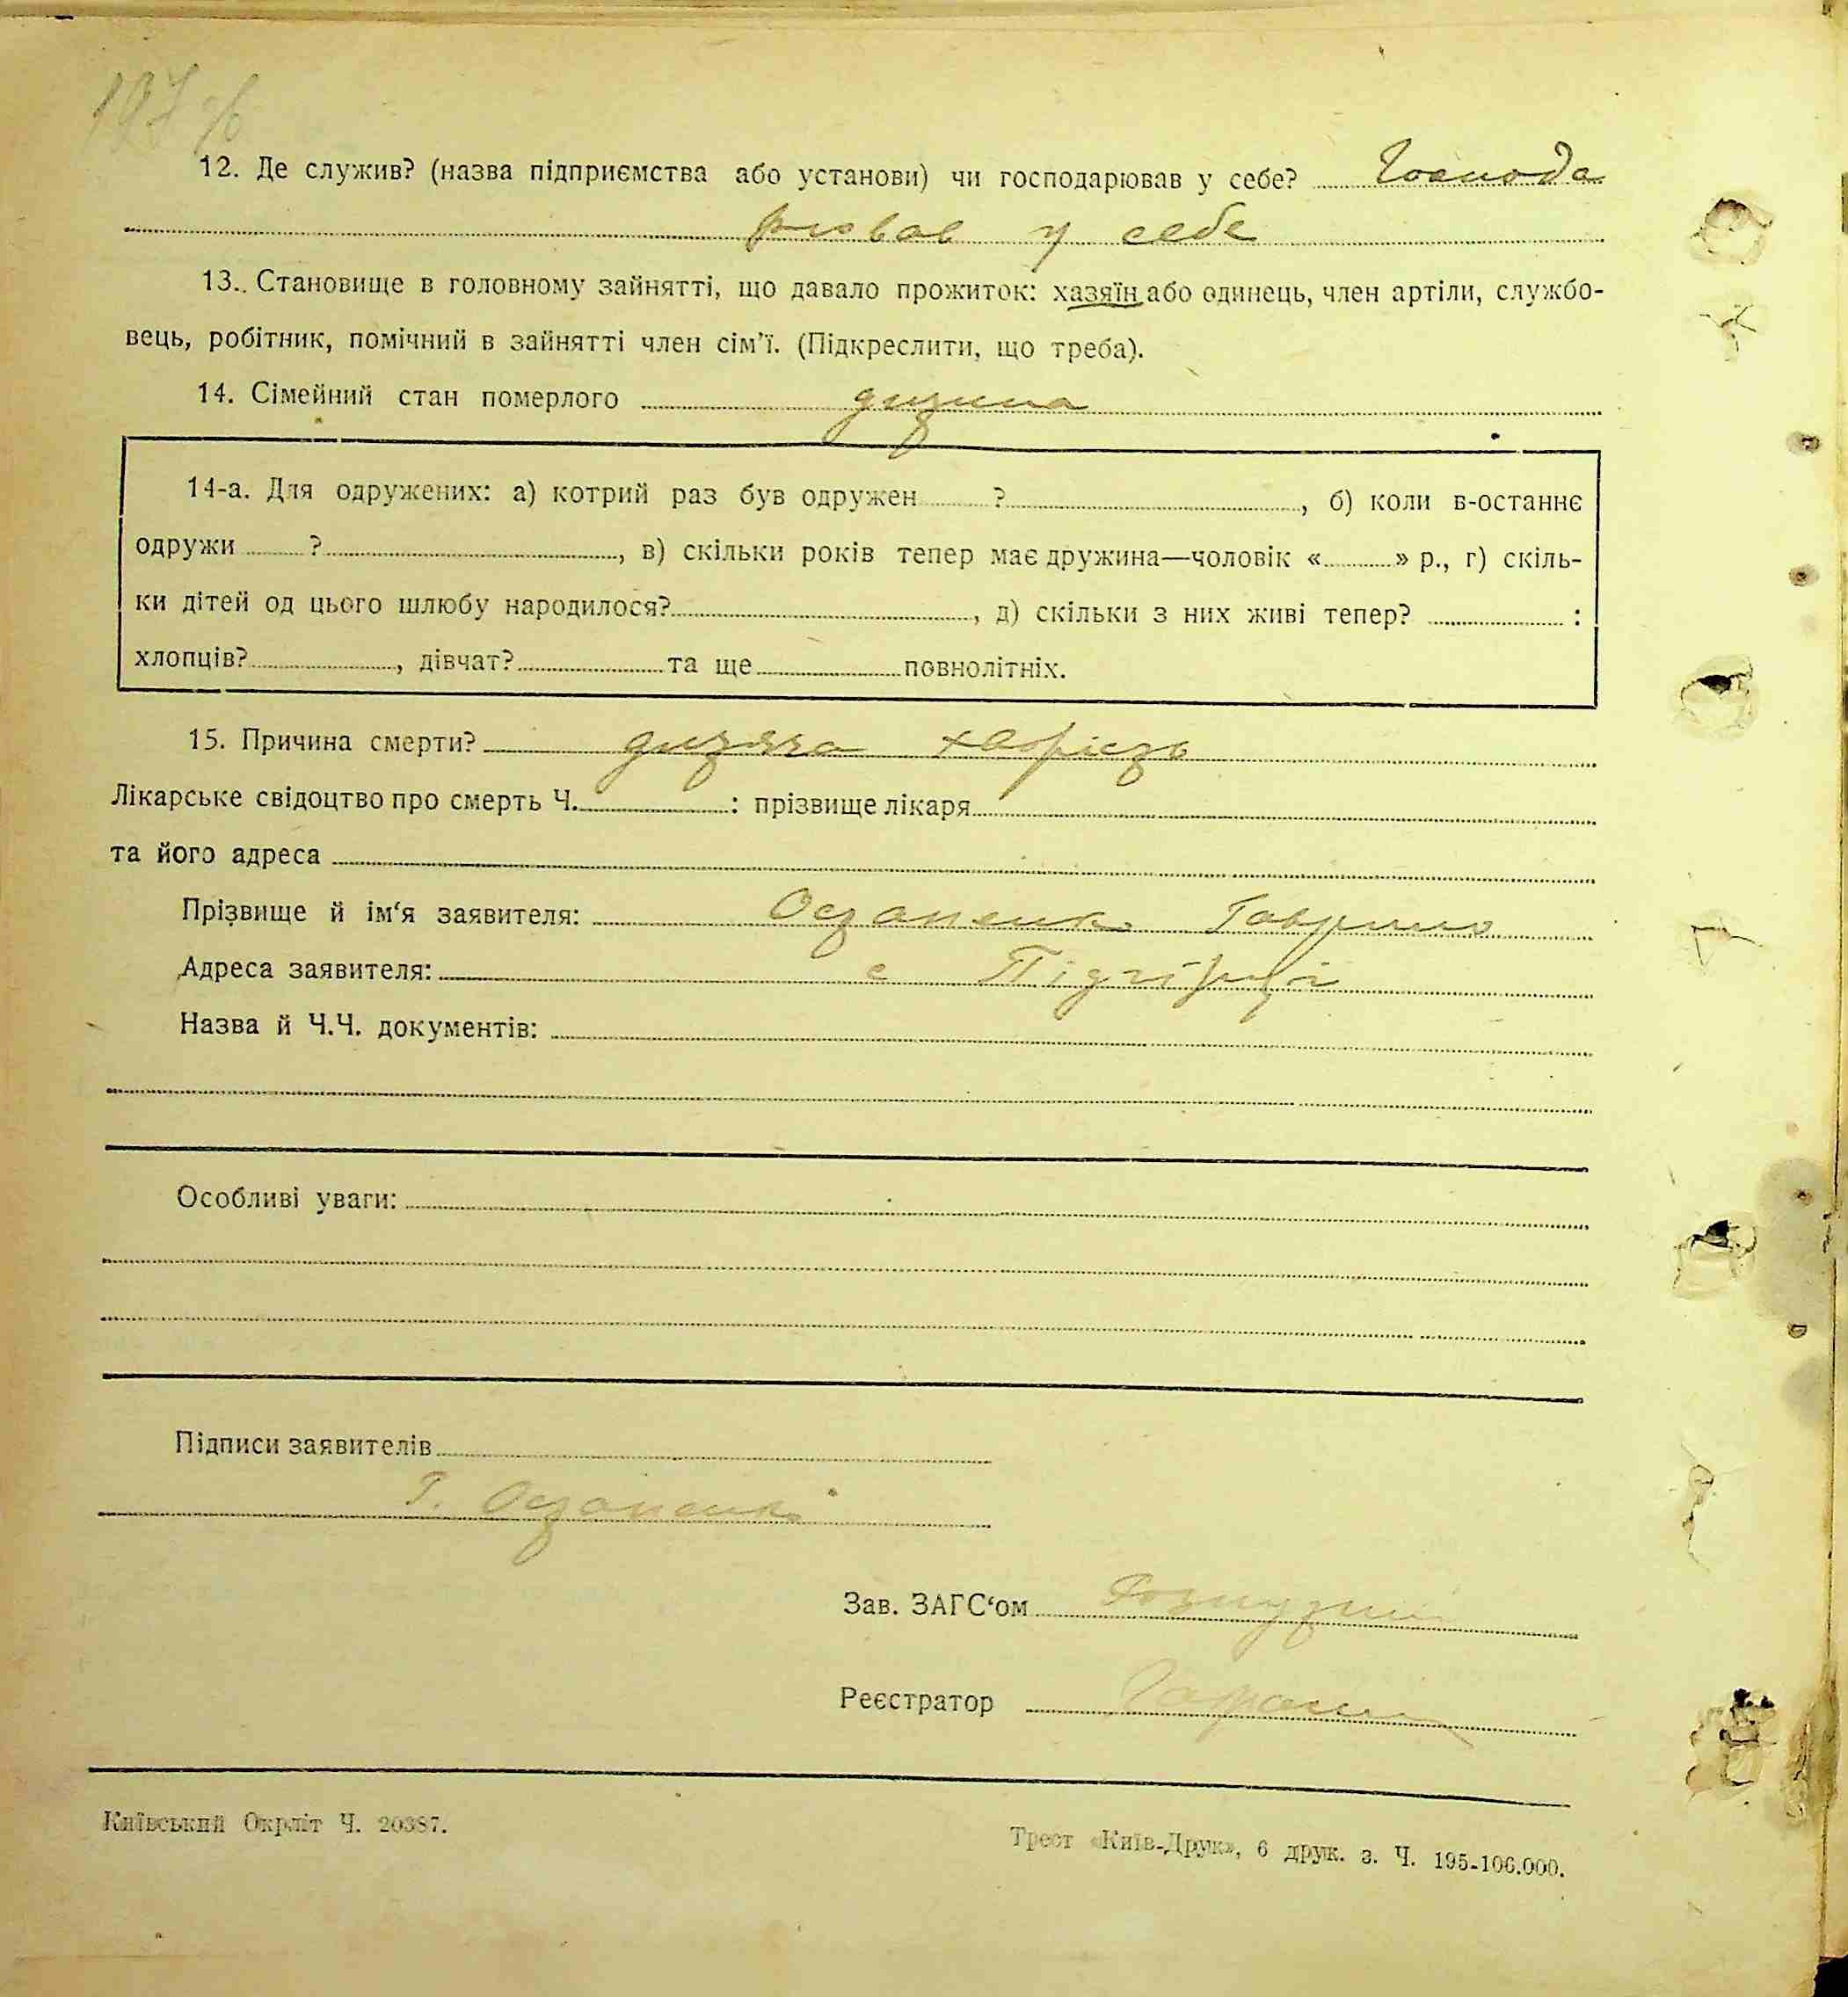 197 зв
12. Де служив? (назва підприємства або установи) чи господарював у себе? Господа
рював у себе
13.. Становище в головному зайнятті, що давало прожиток: хазяїн або одинець, член артіли, службо-
вець, робітник, помічний в зайнятті член сім'ї. (Підкреслити, що треба).
14. Сімейний стан померлого дитина
14-а. Для одружених: а) котрий раз був одружен ? , б) коли в-останнє
одружи ? , в) скільки років тепер має дружина—чоловік « » р., г) скіль-
ки дітей од цього шлюбу народилося? , д) скільки з них живі тепер? :
хлопців? , дівчат? та ще повнолітніх.
15. Причина смерти? дитяча хворість
Лікарське свідоцтво про смерть Ч. : прізвище лікаря
та його адреса
Прізвище й ім'я заявителя: Остапенко Гаврило
Адреса заявителя: с Підгірці
Назва й Ч.Ч. документів:
Особливі уваги:
Підписи заявителів
Г. Остапенко
Зав. ЗАГС'ом
Реєстратор
Київський Окрліт Ч. 20387.
Трест «Київ-Друк», 6 друк. з. Ч. 195-106.000.